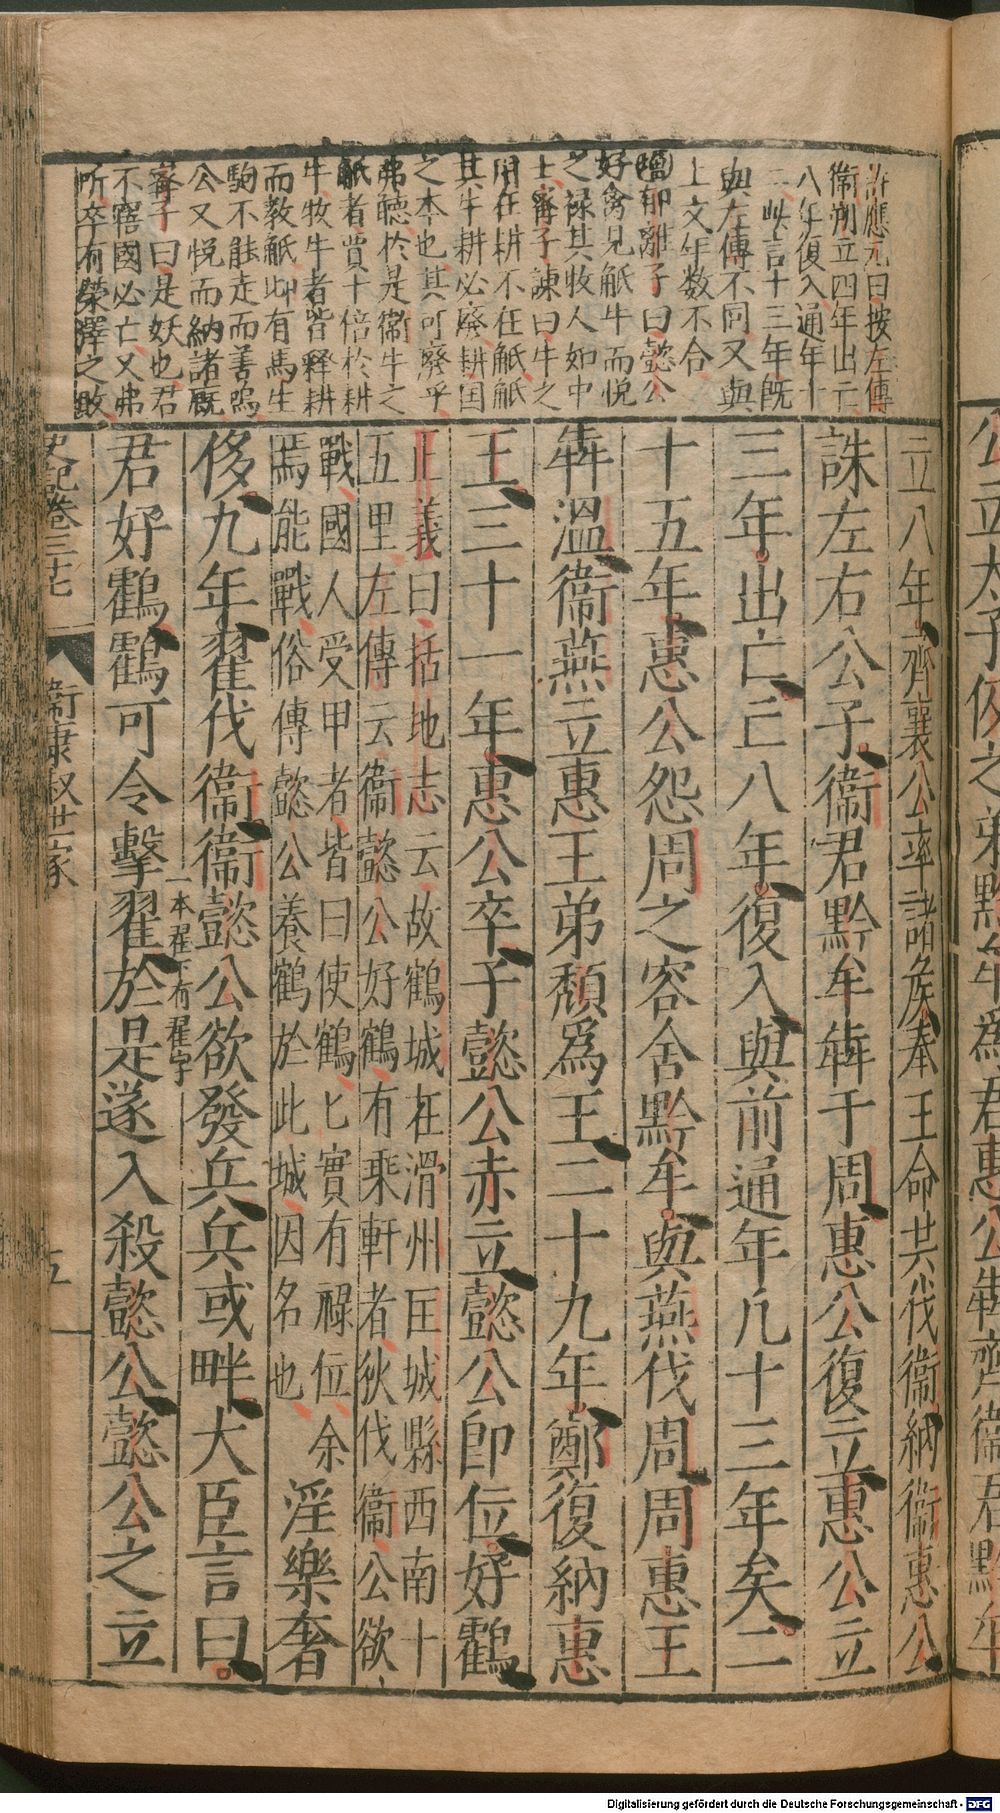 許應元曰按左傳
衞朔立四年出亡
八年復入通年十
二此言十三年旣
與左傳不同又與
上文年数不合
郁離子曰懿公
好禽見觝牛而悦
之禄其牧人如中
士甯子諫曰牛之
用在耕不在觝觝
其牛耕必廢耕国
之本也其可廢乎
弗聽於是衞牛之
觝者賈十倍於耕
牛牧牛者皆釋耕
而教觝此有馬生
駒不能走而善鳴
公又悦而納諸厩
甯子曰是妖也君
不寤國必亡又弗
听卒有榮澤之敗
立八年齊襄公率諸侯奉王命共伐衞納衞惠公
誅左右公子衞君黔牟犇于周惠公復立惠公立
三年出亡亡八年復入與前通年凡十三年矣二
十五年惠公怨周之容舍黔牟與燕伐周周惠王
犇溫衞燕立惠王弟穨爲王二十九年鄭復納惠
王三十一年惠公卒子懿公赤立懿公卽位好鶴
正義曰括地志云故鶴城在滑州匡城縣西南十
五里左傳云衞懿公好鶴有乘軒者狄伐衞公欲
戰國人受甲者皆曰使鶴匕實有祿位余
焉能戰俗傳懿公養鶴於此城因名也
淫樂奢
侈九年翟伐衞衞懿公欲發兵兵或畔大臣言曰
君好鶴鶴可令擊翟
一本翟下有翟字
於是遂入殺懿公懿公之立
史記卷三十七
衞康叔世家
五
公立太子伋之弟黔牟爲君惠公犇齊衞君黔牟
Digitalisierung gefördert durch die Deutsche Forschungsgemeinschaft - DFG